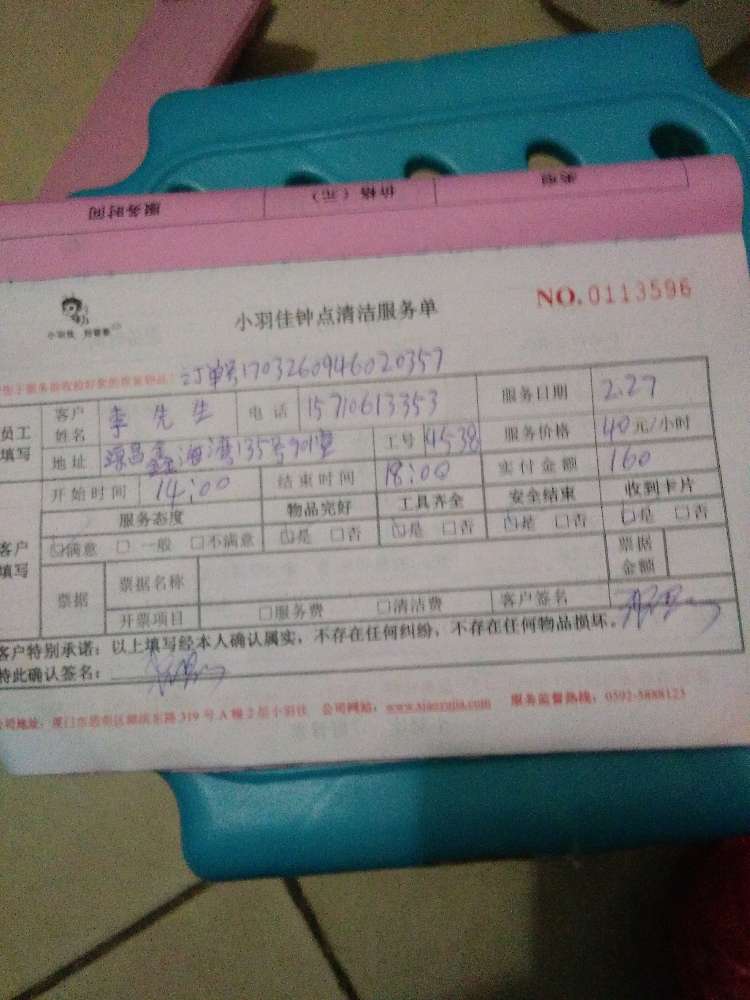 服务时间 价格（元） 类型
小羽佳
小羽佳钟点清洁服务单
NO.0113596
订单号170326094602035７
员工填写
客户姓名 李先生 电话 15710613353 服务日期 2.27
地址 海湾135号901室 工号 4538 服务价格 40元/小时
开始时间 14:00 结束时间 18:00 实付金额 160
客户填写
服务态度 物品完好 工具齐全 安全结束 收到卡片
□满意 □一般 □不满意 □是 □否 □是 □否 □是 □否 □是 □否
票据 票据名称 票据金额
开票项目 □服务费 □清洁费 客户签名
客户特别承诺：以上填写经本人确认属实，不存在任何纠纷，不存在任何物品损坏。
特此确认签名：
公司地址：厦门市思明区湖滨东路319号A幢2层小羽佳 公司网站：www.xiaoyujia.com 服务监督热线：0592-5888123